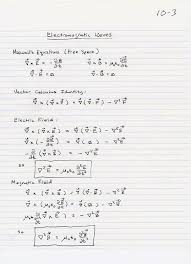 10-3
Electromagnetic Waves
Maxwell's Equations (Free Space)
∇⃗ × E⃗ = -∂B⃗/∂t    ∇⃗ × B⃗ = μ₀ε₀ ∂E⃗/∂t
∇⃗ · E⃗ = 0    ∇⃗ · B⃗ = 0
Vector Calculus Identity:
∇⃗ × (∇⃗ × F⃗) = ∇⃗(∇⃗ · F⃗) - ∇²F⃗
Electric Field:
∇⃗ × (∇⃗ × E⃗) = ∇⃗(∇⃗ · E⃗) - ∇²E⃗
∇⃗ × (-∂B⃗/∂t) = ∇⃗(0) - ∇²E⃗
-∂/∂t (∇⃗ × B⃗) = -∇²E⃗
so ∇²E⃗ = μ₀ε₀ ∂²E⃗/∂t²
Magnetic Field
∇⃗ × (∇⃗ × B⃗) = ∇⃗(∇⃗ · B⃗) - ∇²B⃗
∇⃗ × (μ₀ε₀ ∂E⃗/∂t) = ∇⃗(0) - ∇²B⃗
μ₀ε₀ ∂/∂t (∇⃗ × E⃗) = -∇²B⃗
so ∇²B⃗ = μ₀ε₀ ∂²B⃗/∂t²